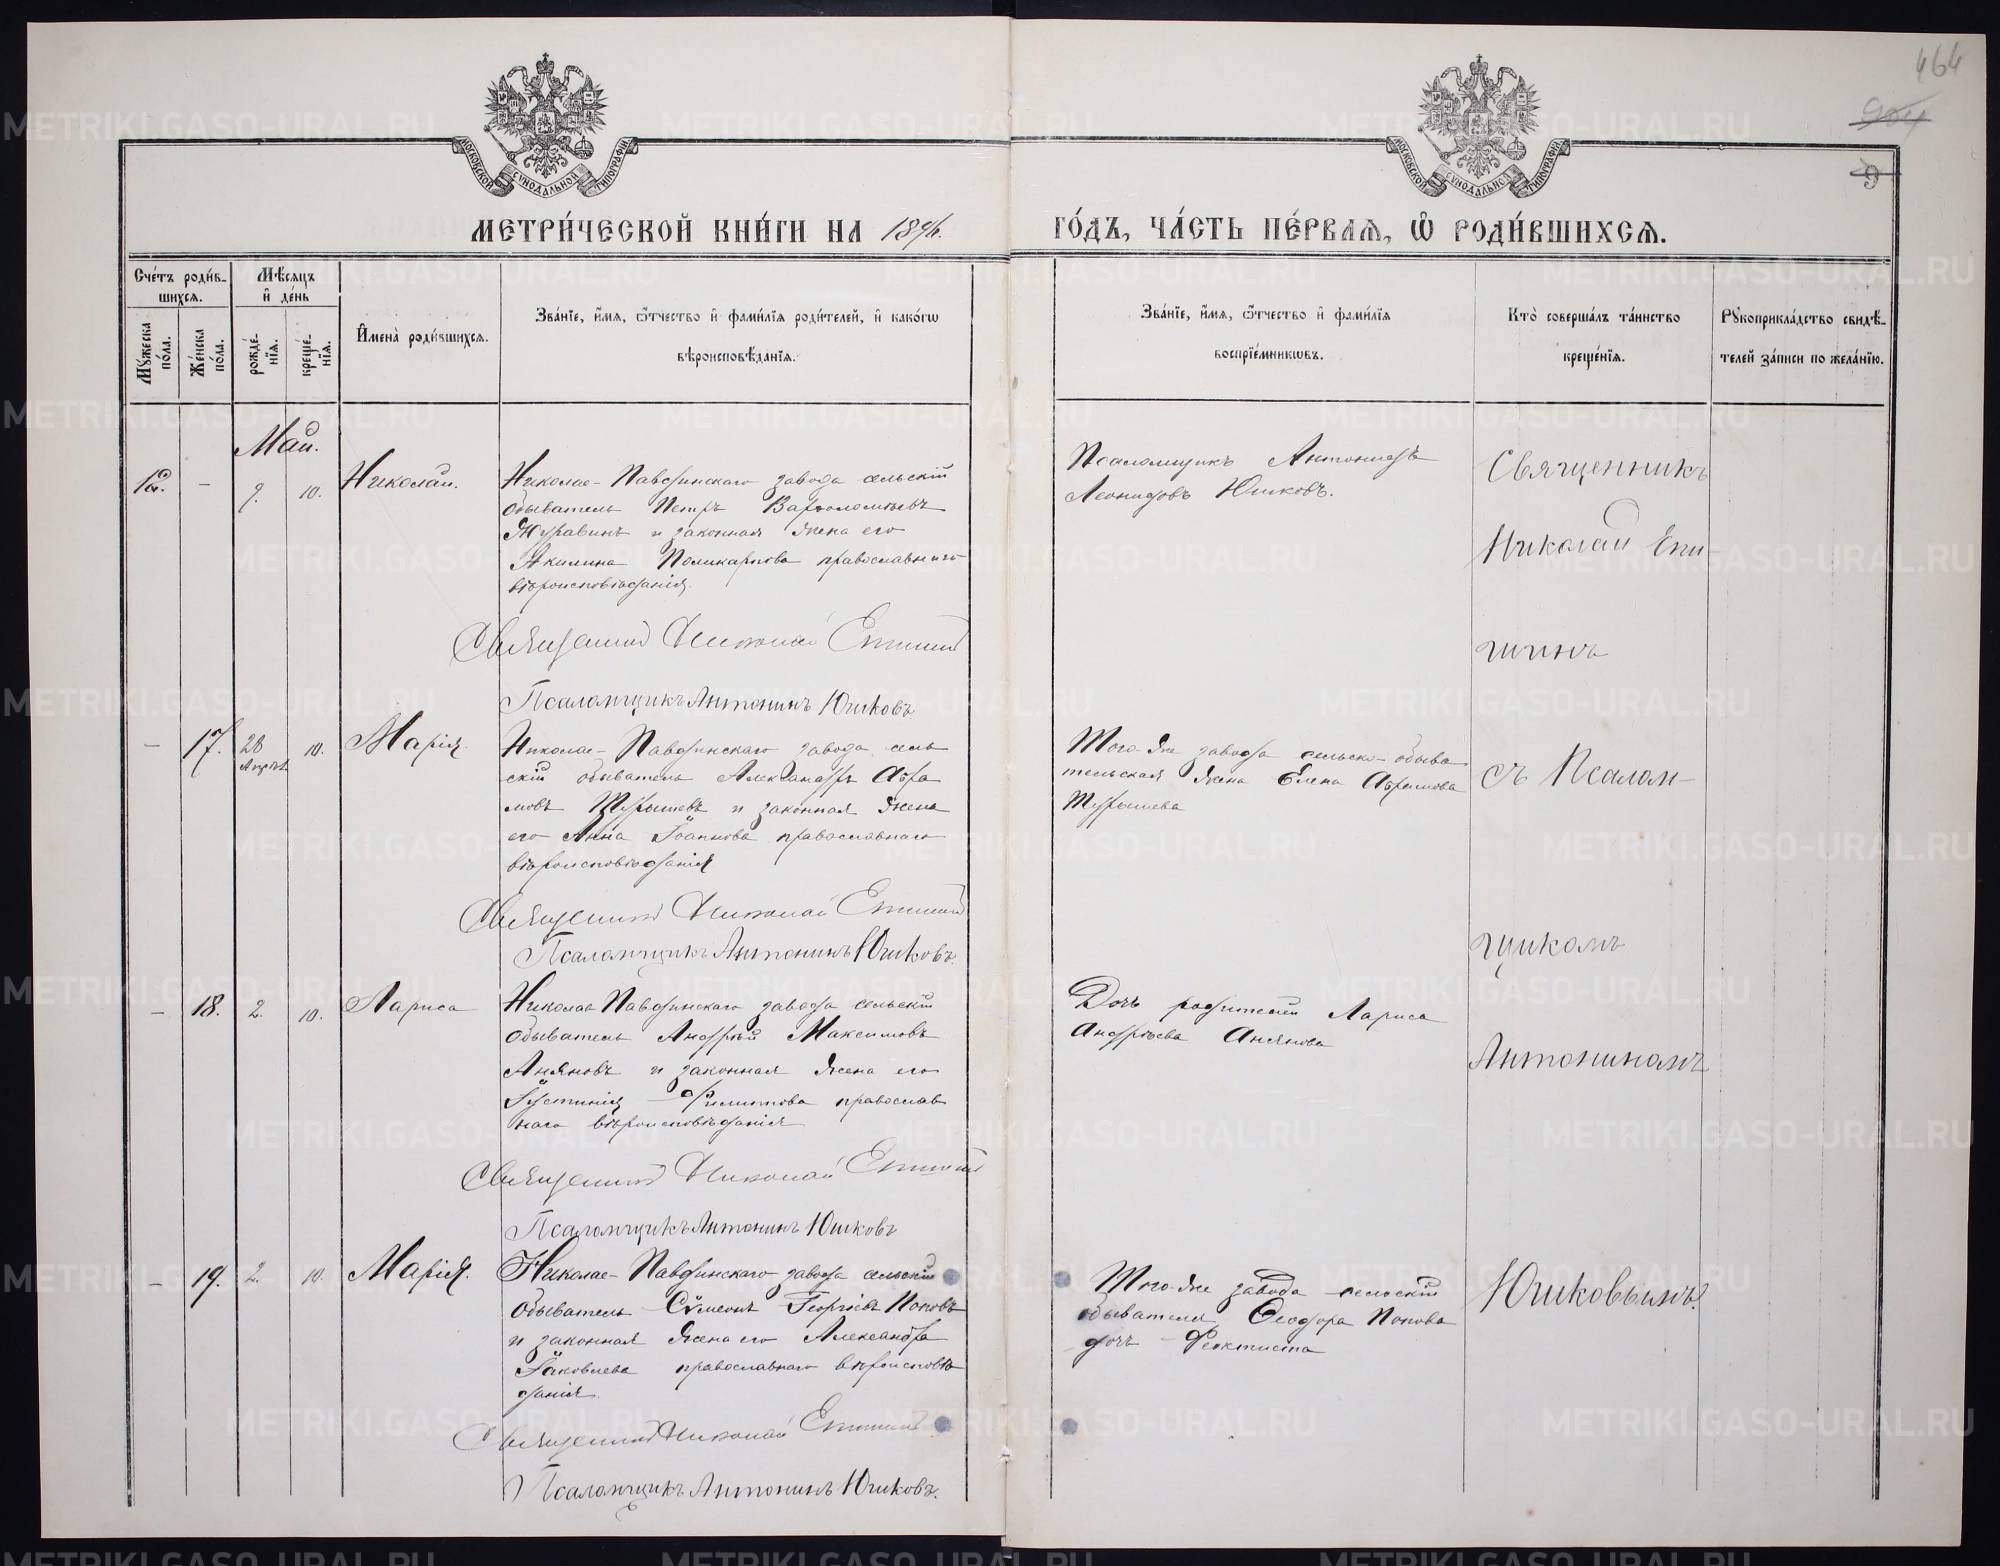 464
904
9
МОСКОВСКОЙ СѴНОДАЛЬНОЙ ТИПОГРАФІИ
МОСКОВСКОЙ СѴНОДАЛЬНОЙ ТИПОГРАФІИ
МЕТРИ́ЧЕСКОЙ КНИ́ГИ НА 1896.
ГО́ДЪ, ЧА́СТЬ ПЕ́РВАѦ, Ѽ РОДИ́ВШИХСѦ.
Сче́тъ роди́в-
шихсѧ.
Мѣ́сѧцъ
и҆ де́нь
Мꙋ́жеска
по́ла.
Же́нска
по́ла.
рожде́-
нїѧ.
креще́-
нїѧ.
И҆мена̀ роди́вшихсѧ.
Зва́нїе, и҆́мѧ, ѻ҆́тчество и҆ фами́лїѧ роди́телей, и҆ како́гѡ
вѣроисповѣ́данїѧ.
Зва́нїе, и҆́мѧ, ѻ҆́тчество и҆ фами́лїѧ
воспрїе́мникѡвъ.
Кто̀ соверша́лъ та́инство
креще́нїѧ.
Рꙋкоприкла́дство свидѣ́-
телей за́писи по жела́нїю.
Май.
12. - 9. 10. Николай.
Николае-Павдинскаго завода сельскій
обыватель Петръ Варѳоломѣевъ
Журавинъ и законная жена его
Акилина Поликарпова православнаго
вѣроисповѣданія.
Священникъ Николай Епишинъ
Псаломщикъ Антонинъ Юшковъ
Псаломщикъ Антонинъ
Леонидовъ Юшковъ.
Священникъ
Николай Епи-
шинъ
- 17. 28 Апрѣл. 10. Марія.
Николае-Павдинскаго завода сель
скій обыватель Александръ Абра
мовъ Турышевъ и законная жена
его Анна Іоаннова православнаго
вѣроисповѣданія
Священникъ Николай Епишинъ
Псаломщикъ Антонинъ Юшковъ.
Того-же завода сельско-обыва
тельская жена Елена Абрамова
Турышева
съ Псалом-
щикомъ
- 18. 2. 10. Лариса
Николае Павдинскаго завода сельскій
обыватель Андрей Максимовъ
Аняновъ и законная жена его
Іустинія Филиппова православ
наго вѣроисповѣданія
Священникъ Николай Епишинъ
Псаломщикъ Антонинъ Юшковъ
Дочь родителей Лариса
Андреева Анянова
Антониномъ
- 19. 2. 10. Марія.
Николае-Павдинскаго завода сельскій
обыватель Сѵмеонъ Георгіевъ Поповъ
и законная жена его Александра
Іаковлева православнаго вѣроисповѣ
данія.
Священникъ Николай Епишинъ
Псаломщикъ Антонинъ Юшковъ.
Того-же завода сельскій
обывателя Ѳеодора Попова
дочь Феоктиста
Юшковымъ.
METRIKI.GASO-URAL.RU